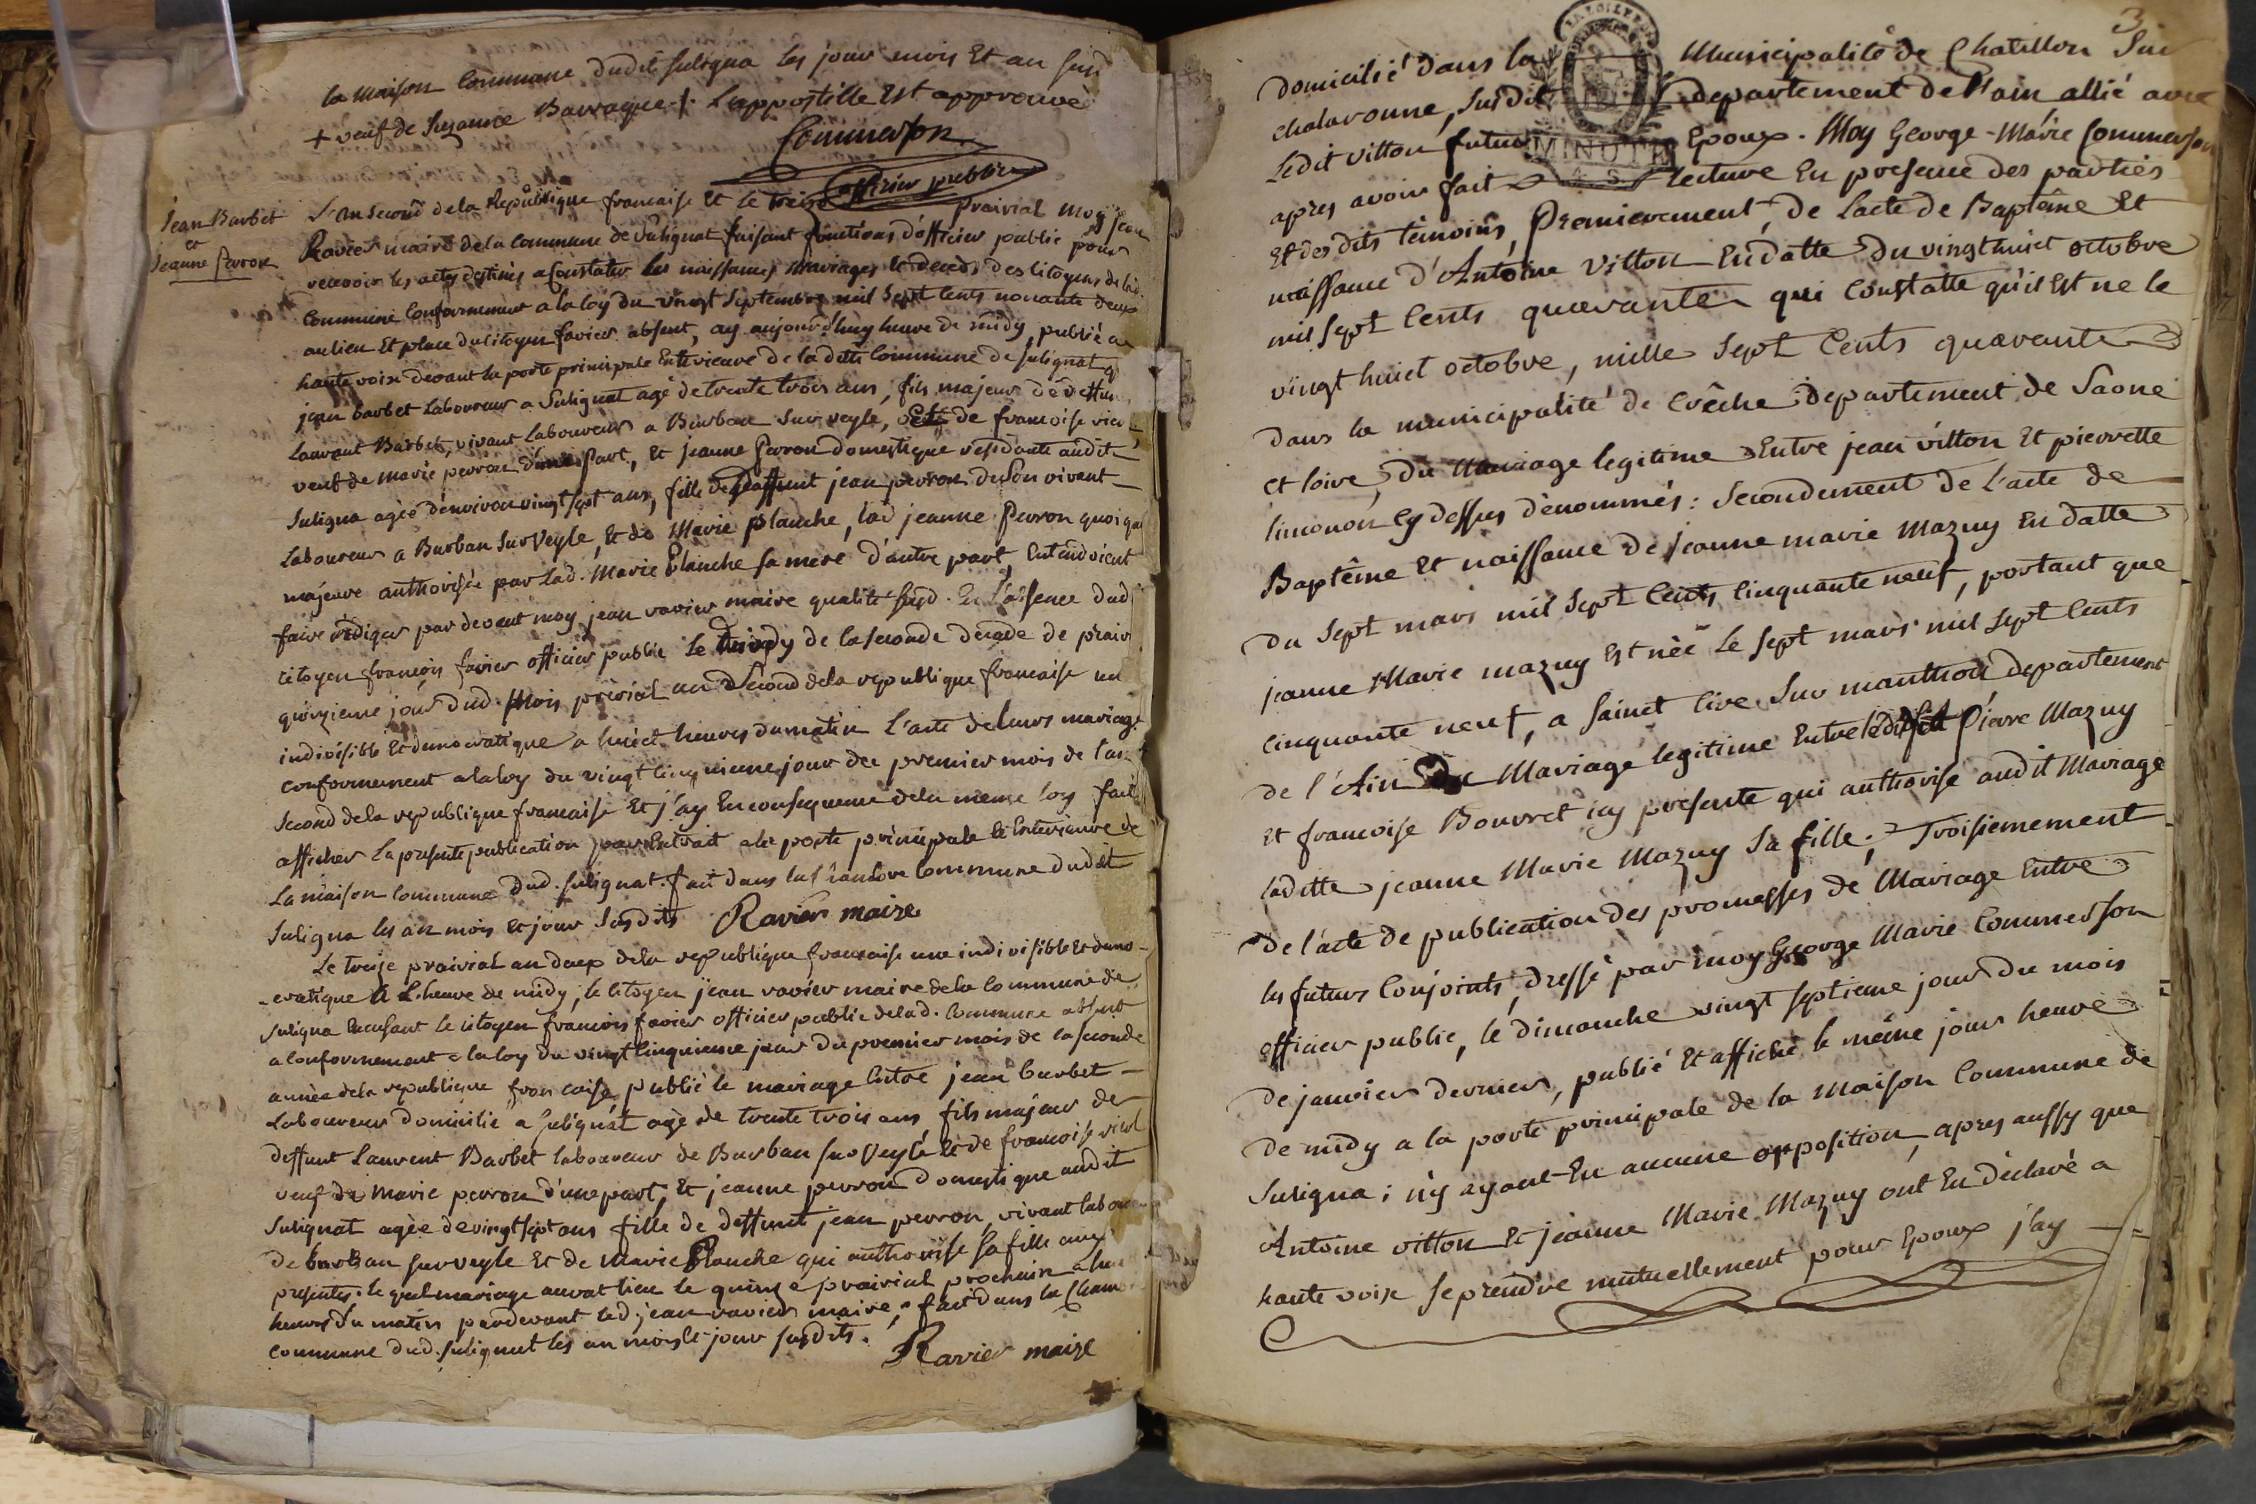 la maison Commune dudit suligna les jour mois Et an susd
+ veuf de Suzanne Barraque + L'appostille Est approuvé
Commerson
officier public
Jean Barbet
et
Jeanne Perron
L'an Second de la Republique francaise Et le treise prairial moy jean
Ravier maire de la commune de Sulignat faisant fonctions d'officier public pour
recevoir les actes destinés a Constater les naissances mariages et deces des citoyens de lad.
Commune Conformement a la loy du vingt Septembre mil Sept Cents nonante deux
au lieu Et place du citoyen favier absent, ay aujourd'huy heure de midy, publié a
haute voix devant la porte principale Exterieure de la ditte Commune de sulignat q
jean barbet Laboureur a Sulignat agé de trente trois ans, fils majeur de deffunt
Laurant Barbet, vivant Laboureur a Burban sur veyle, et de francoise viol
veuf de Marie perron d'une part, Et jeanne Perron domestique residante audit
Suligna agée d'environ vingt sept ans, fille de deffunt jean perron de son vivant
Laboureur a Burban sur Veyle, Et de Marie planche, lad jeanne Perron quoi que
majeure authorisée par lad. Marie Planche sa mere d'autre part, Entendoient
faire rediger par devant moy jean ravier maire qualité susd. En L'absence dud
citoyen francois favier officier public le de la seconde decade de prair
quinzieme jour dud. Mois prerial an Second de la republique francaise un
indivisible Et democratique a huict heures du matin L'acte de leurs mariage
conformement a la loy du vingt cinquieme jour du premier mois de l'an
Second de la republique francaise Et j'ay En consequence de la meme loy fait
afficher la presente publication par Extrait a la porte principale et Exterieure de
La maison Commune dud. sulignat. fait dans la chambre commune dudit
Suligna les an mois et jour Susdits Ravier maire
Le treise prairial an deux de la republique francaise une indivisible Et demo-
-cratique a L'heure de midy, le Citoyen jean ravier maire de la Commune de
Suligna Excusant le citoyen francois favier officier public de lad. Commune absent
a conformement a la loy du vingt cinquieme jour du premier mois de la seconde
année de la republique francaise publié le mariage Entre jean barbet
Laboureur domicilie a Sulignat agé de trente trois ans fils majeur de
deffunt Laurent Barbet laboureur de Burban sur Veyle et de francoise viol
veuf de Marie perron d'une part, Et jeanne perron domestique audit
Sulignat agée de vingt sept ans fille de deffunt jean perron vivant labou
de burban sur veyle Et de Marie Planche qui authorise sa fille aux
presentes. le quel mariage aurat lieu le quinze prairial prochain a hu
heures du matin pardevant led. jean ravier maire, fait dans la Cham
commune dud. sulignat les an mois et jour susdits.
Ravier maire
3
domicilié dans la Municipalité de Chatillon Sur
chalaronne, Susdit departement de l'ain allié avec
Ledit vitton futur Epoux. Moy George-Marie Commerson
MINUTE
apres avoir fait lecture En presence des parties
Et des dits témoins, Premierement, de L'acte de Baptême Et
naissance d'Antoine Vitton En datte du vingt huict octobre
mil sept Cents quarante qui Constatte qu'il Est ne le
vingt huict octobre, mille Sept Cents quarante
dans la municipalité de Crêche departement de Saone
et loire, du Mariage legitime Entre jean vitton Et pierrette
limonon Cy dessus dénommés: Secondement de L'acte de
Baptême Et naissance de jeanne marie Mazuy En datte
du Sept mars mil Sept Cents Cinquante neuf, portant que
jeanne Marie mazuy Est née Le sept mars mil Sept Cents
Cinquante neuf, a Sainct Cire Sur manthon departement
de l'Ain du Mariage legitime Entre Pierre Mazuy
Et francoise Bouvret icy presente qui authorise audit Mariage
laditte jeanne Marie Mazuy Sa fille; Troisiemement
de l'acte de publication des promesses de Mariage Entre
les futurs Conjoints, dressé par moy George Marie Commerson
officier public, le dimanche vingt septieme jour du mois
de janvier dernier, publié Et affiché le même jour heure
de midy a la porte principale de la Maison Commune de
Suligna; n'y ayant Eu aucune opposition, apres aussy que
Antoine vitton Et jeanne Marie Mazuy ont Eu declaré a
haute voix Se prendre mutuellement pour Epoux j'ay